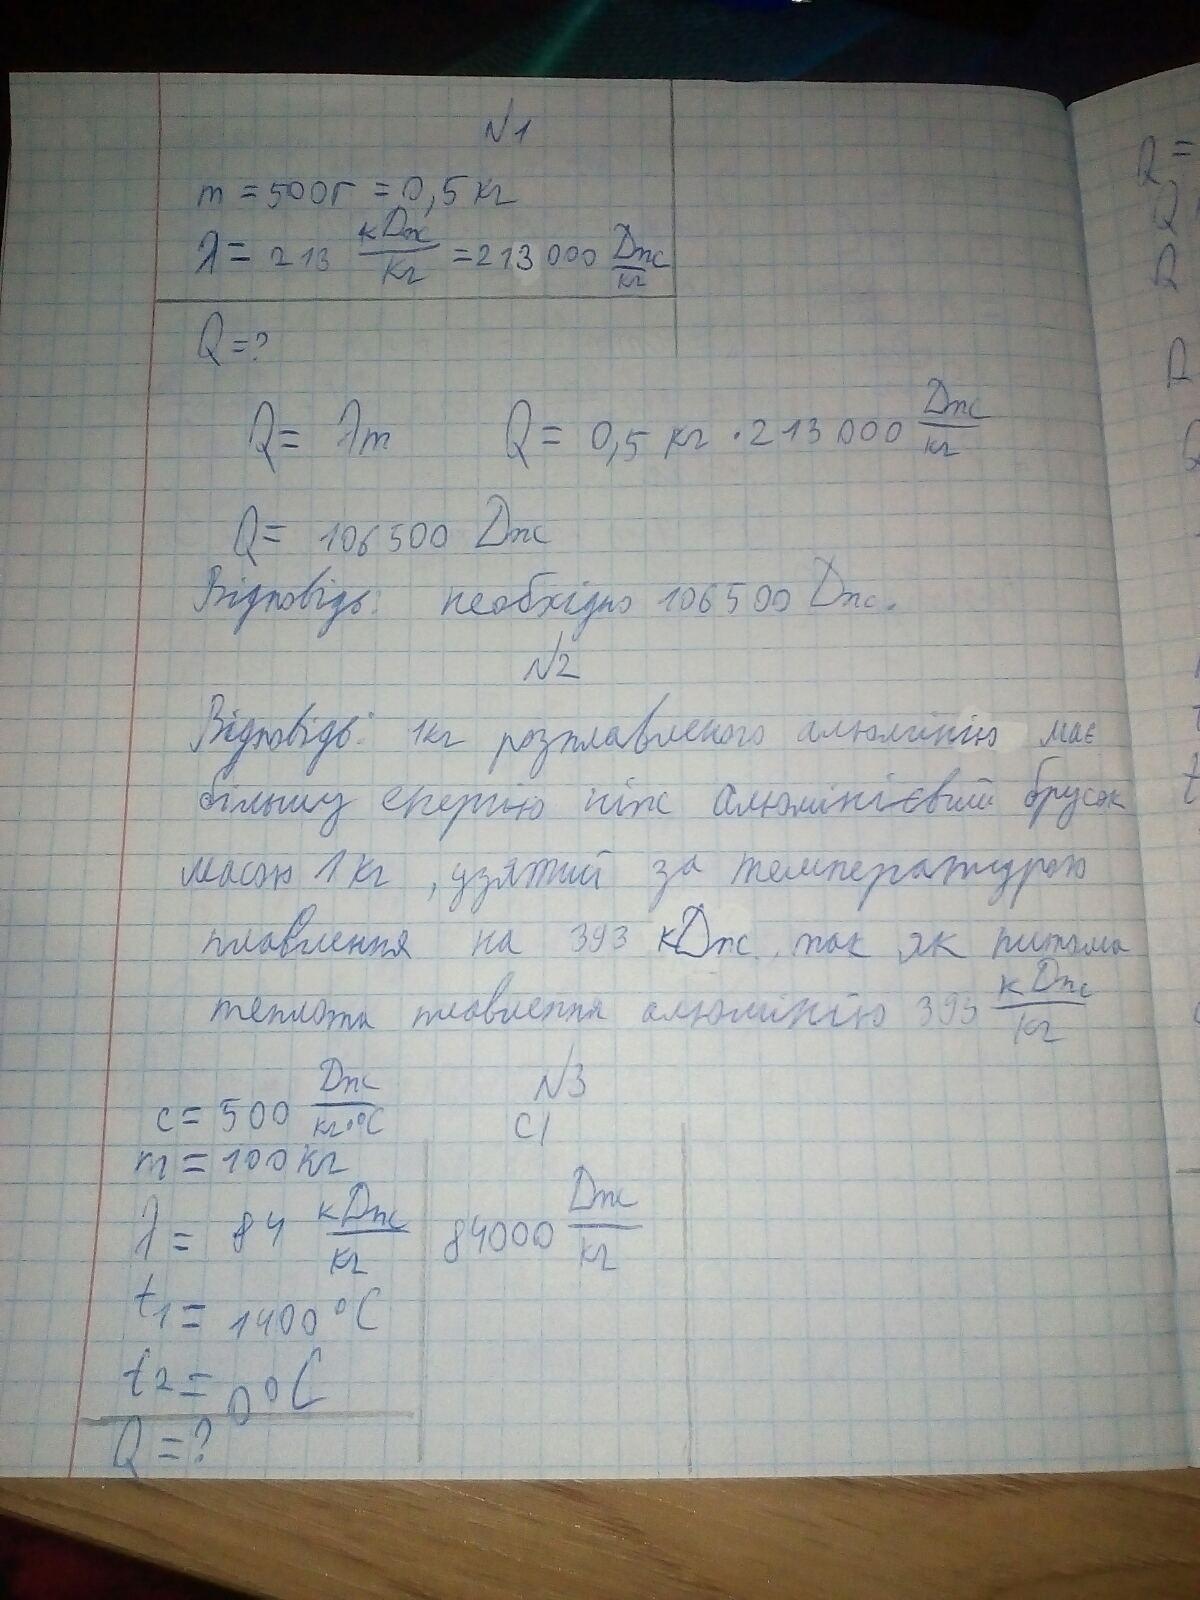 N1
m = 500г = 0,5 кг
λ = 213 кДж/кг = 213 000 Дж/кг
Q = ?
Q = λm Q = 0,5 кг · 213 000 Дж/кг
Q = 106 500 Дж
Відповідь: необхідно 106 500 Дж.
N2
Відповідь: 1кг розплавленого алюмінію має
більшу енергію ніж алюмінієвий брусок
масою 1 кг , узятий за температурою
плавлення на 393 кДж, так як питома
теплота плавлення алюмінію 393 кДж/кг
N3
c = 500 Дж/кг·°C СІ
m = 100 кг
λ = 84 кДж/кг 84000 Дж/кг
t1 = 1400 °C
t2 = 0 °C
Q = ?
Q =
Q